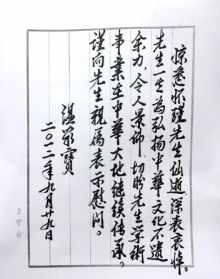 惊悉怀瑾先生仙逝，深表哀悼。
先生一生为弘扬中华文化不遗
余力，令人景仰。切盼先生学术
事业在中华大地继续传承。
谨向先生亲属表示慰问。
温家宝
二〇一二年九月廿九日